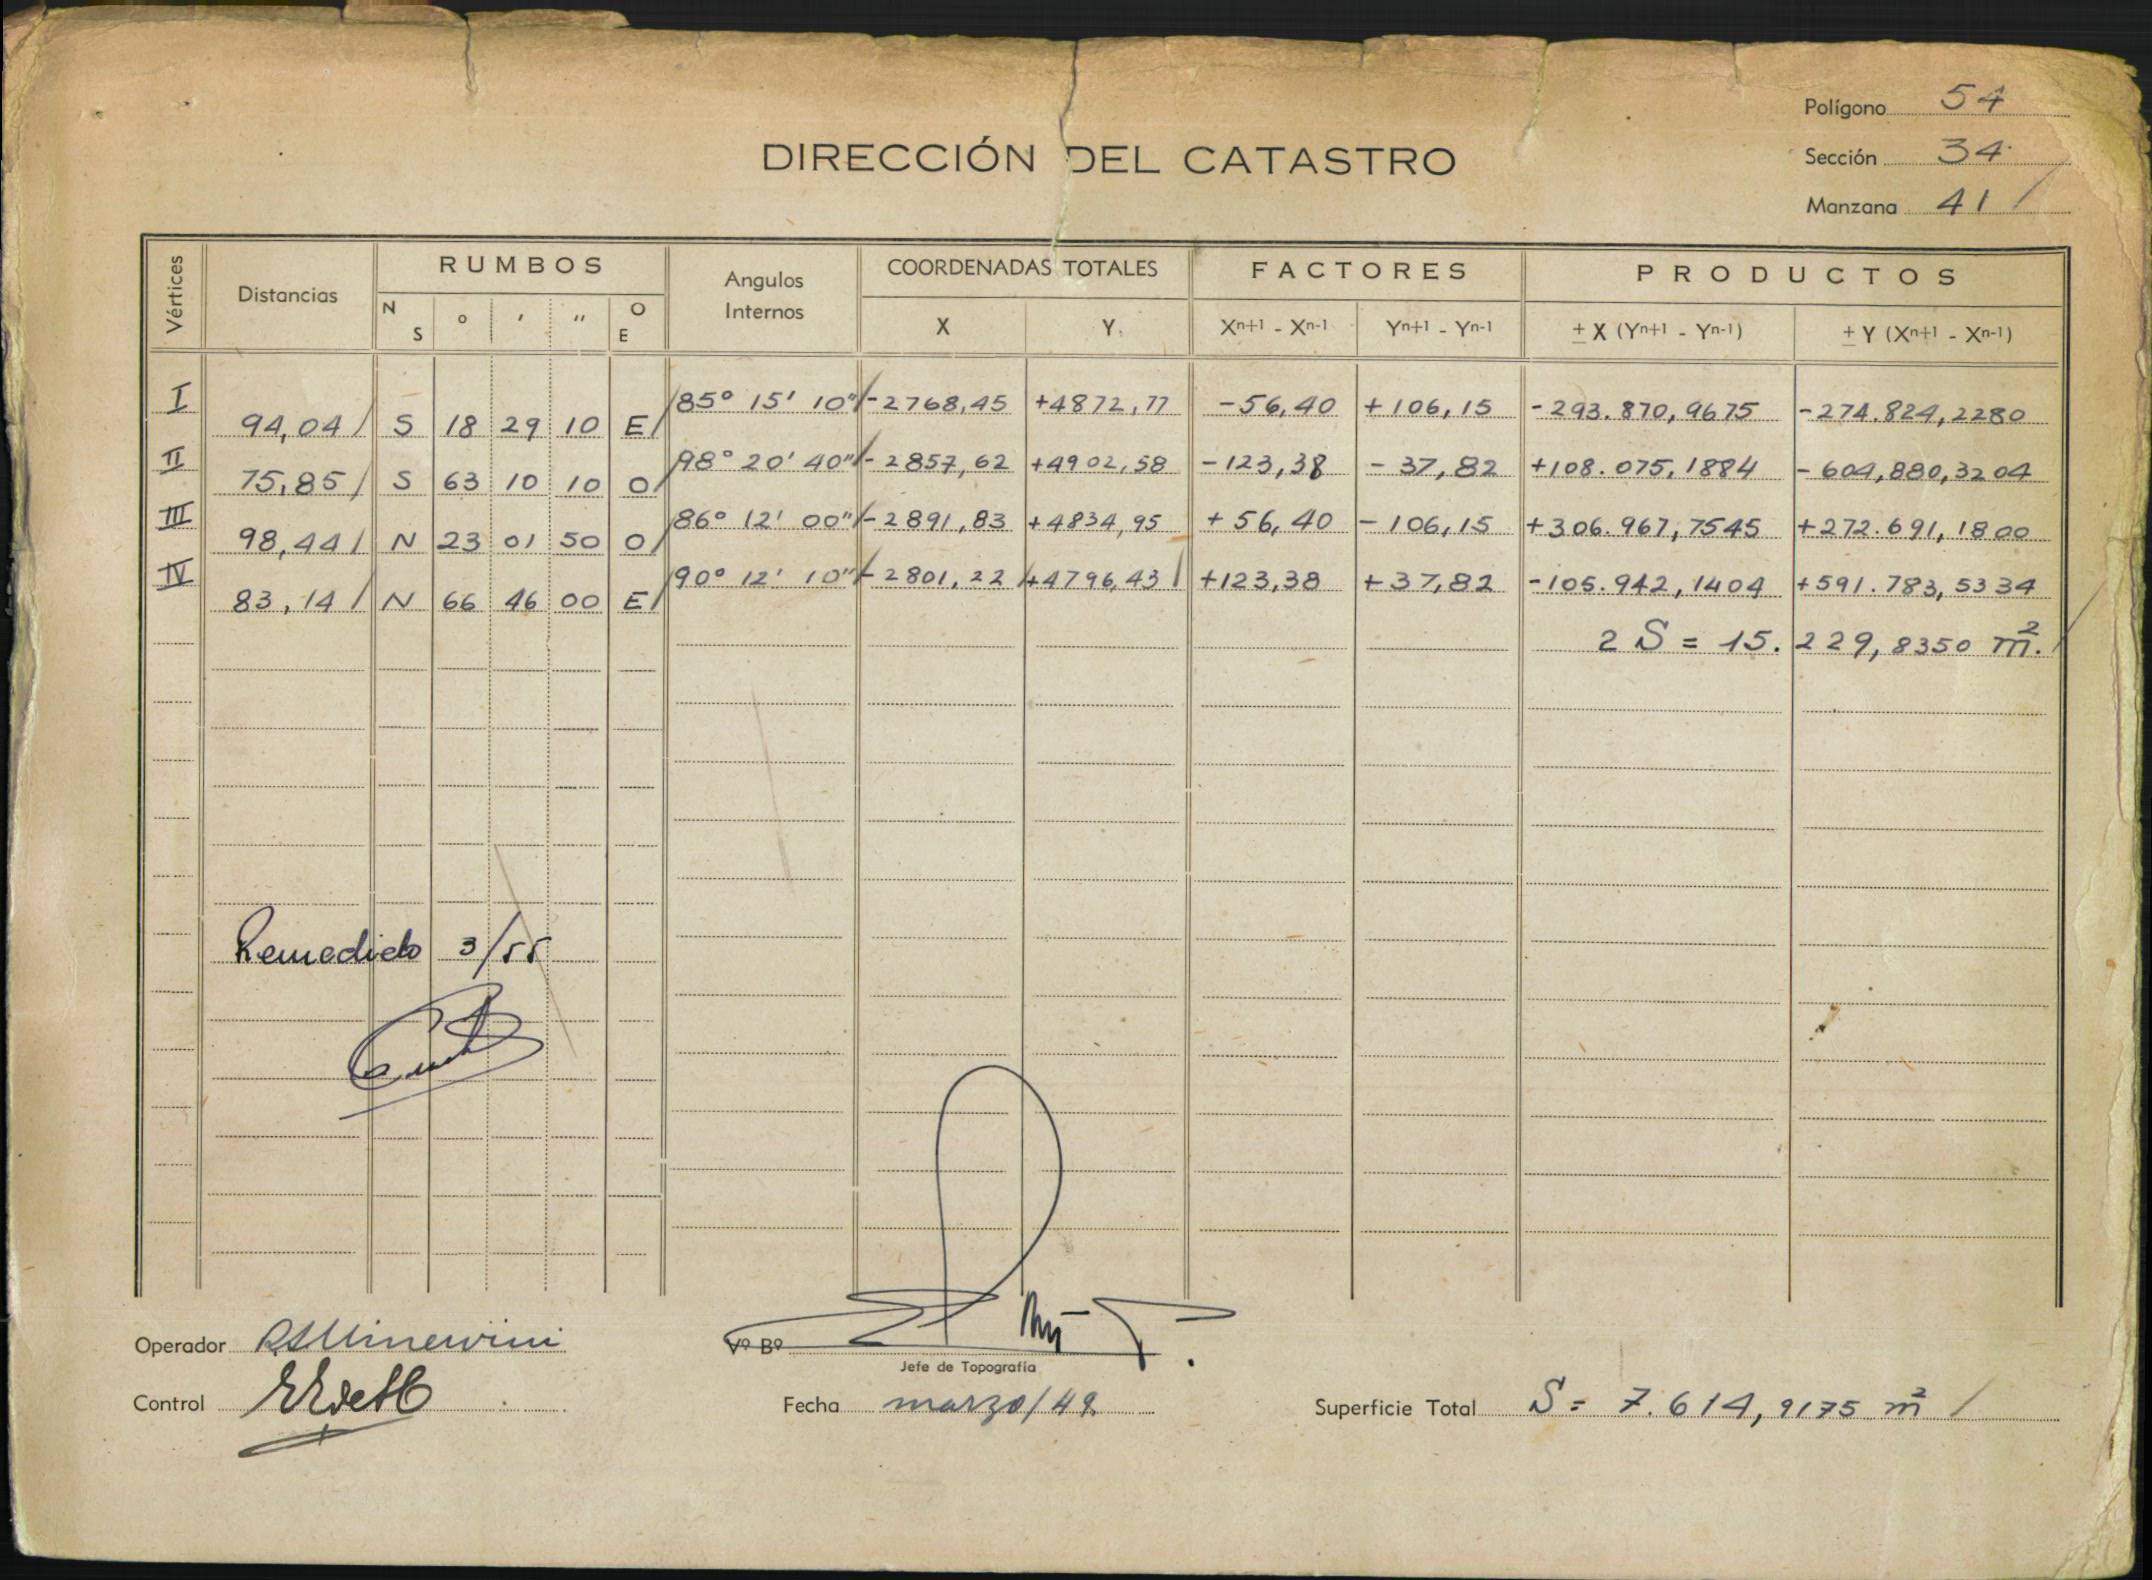 Polígono 54
DIRECCIÓN DEL CATASTRO
Sección 34
Manzana 41
Vértices Distancias RUMBOS Angulos Internos COORDENADAS TOTALES FACTORES PRODUCTOS
N S ° ′ ″ O E X Y Xn+1 - Xn-1 Yn+1 - Yn-1 ± X (Yn+1 - Yn-1) ± Y (Xn+1 - Xn-1)
I 85° 15' 10" -2768,45 +4872,77 -56,40 +106,15 -293.870,9675 -274.824,2280
94,04 S 18 29 10 E
II 98° 20' 40" -2857,62 +4902,58 -123,38 -37,82 +108.075,1884 -604,880,3204
75,85 S 63 10 10 O
III 86° 12' 00" -2891,83 +4834,95 +56,40 -106,15 +306.967,7545 +272.691,1800
98,44 N 23 01 50 O
IV 90° 12' 10" -2801,22 +4796,43 +123,38 +37,82 -105.942,1404 +591.783,5334
83,14 N 66 46 00 E
2 S = 15.229,8350 m².
Remedido 3/55
Operador
Vº Bº
Jefe de Topografía
Control
Fecha marzo/49
Superficie Total S = 7.614,9175 m²